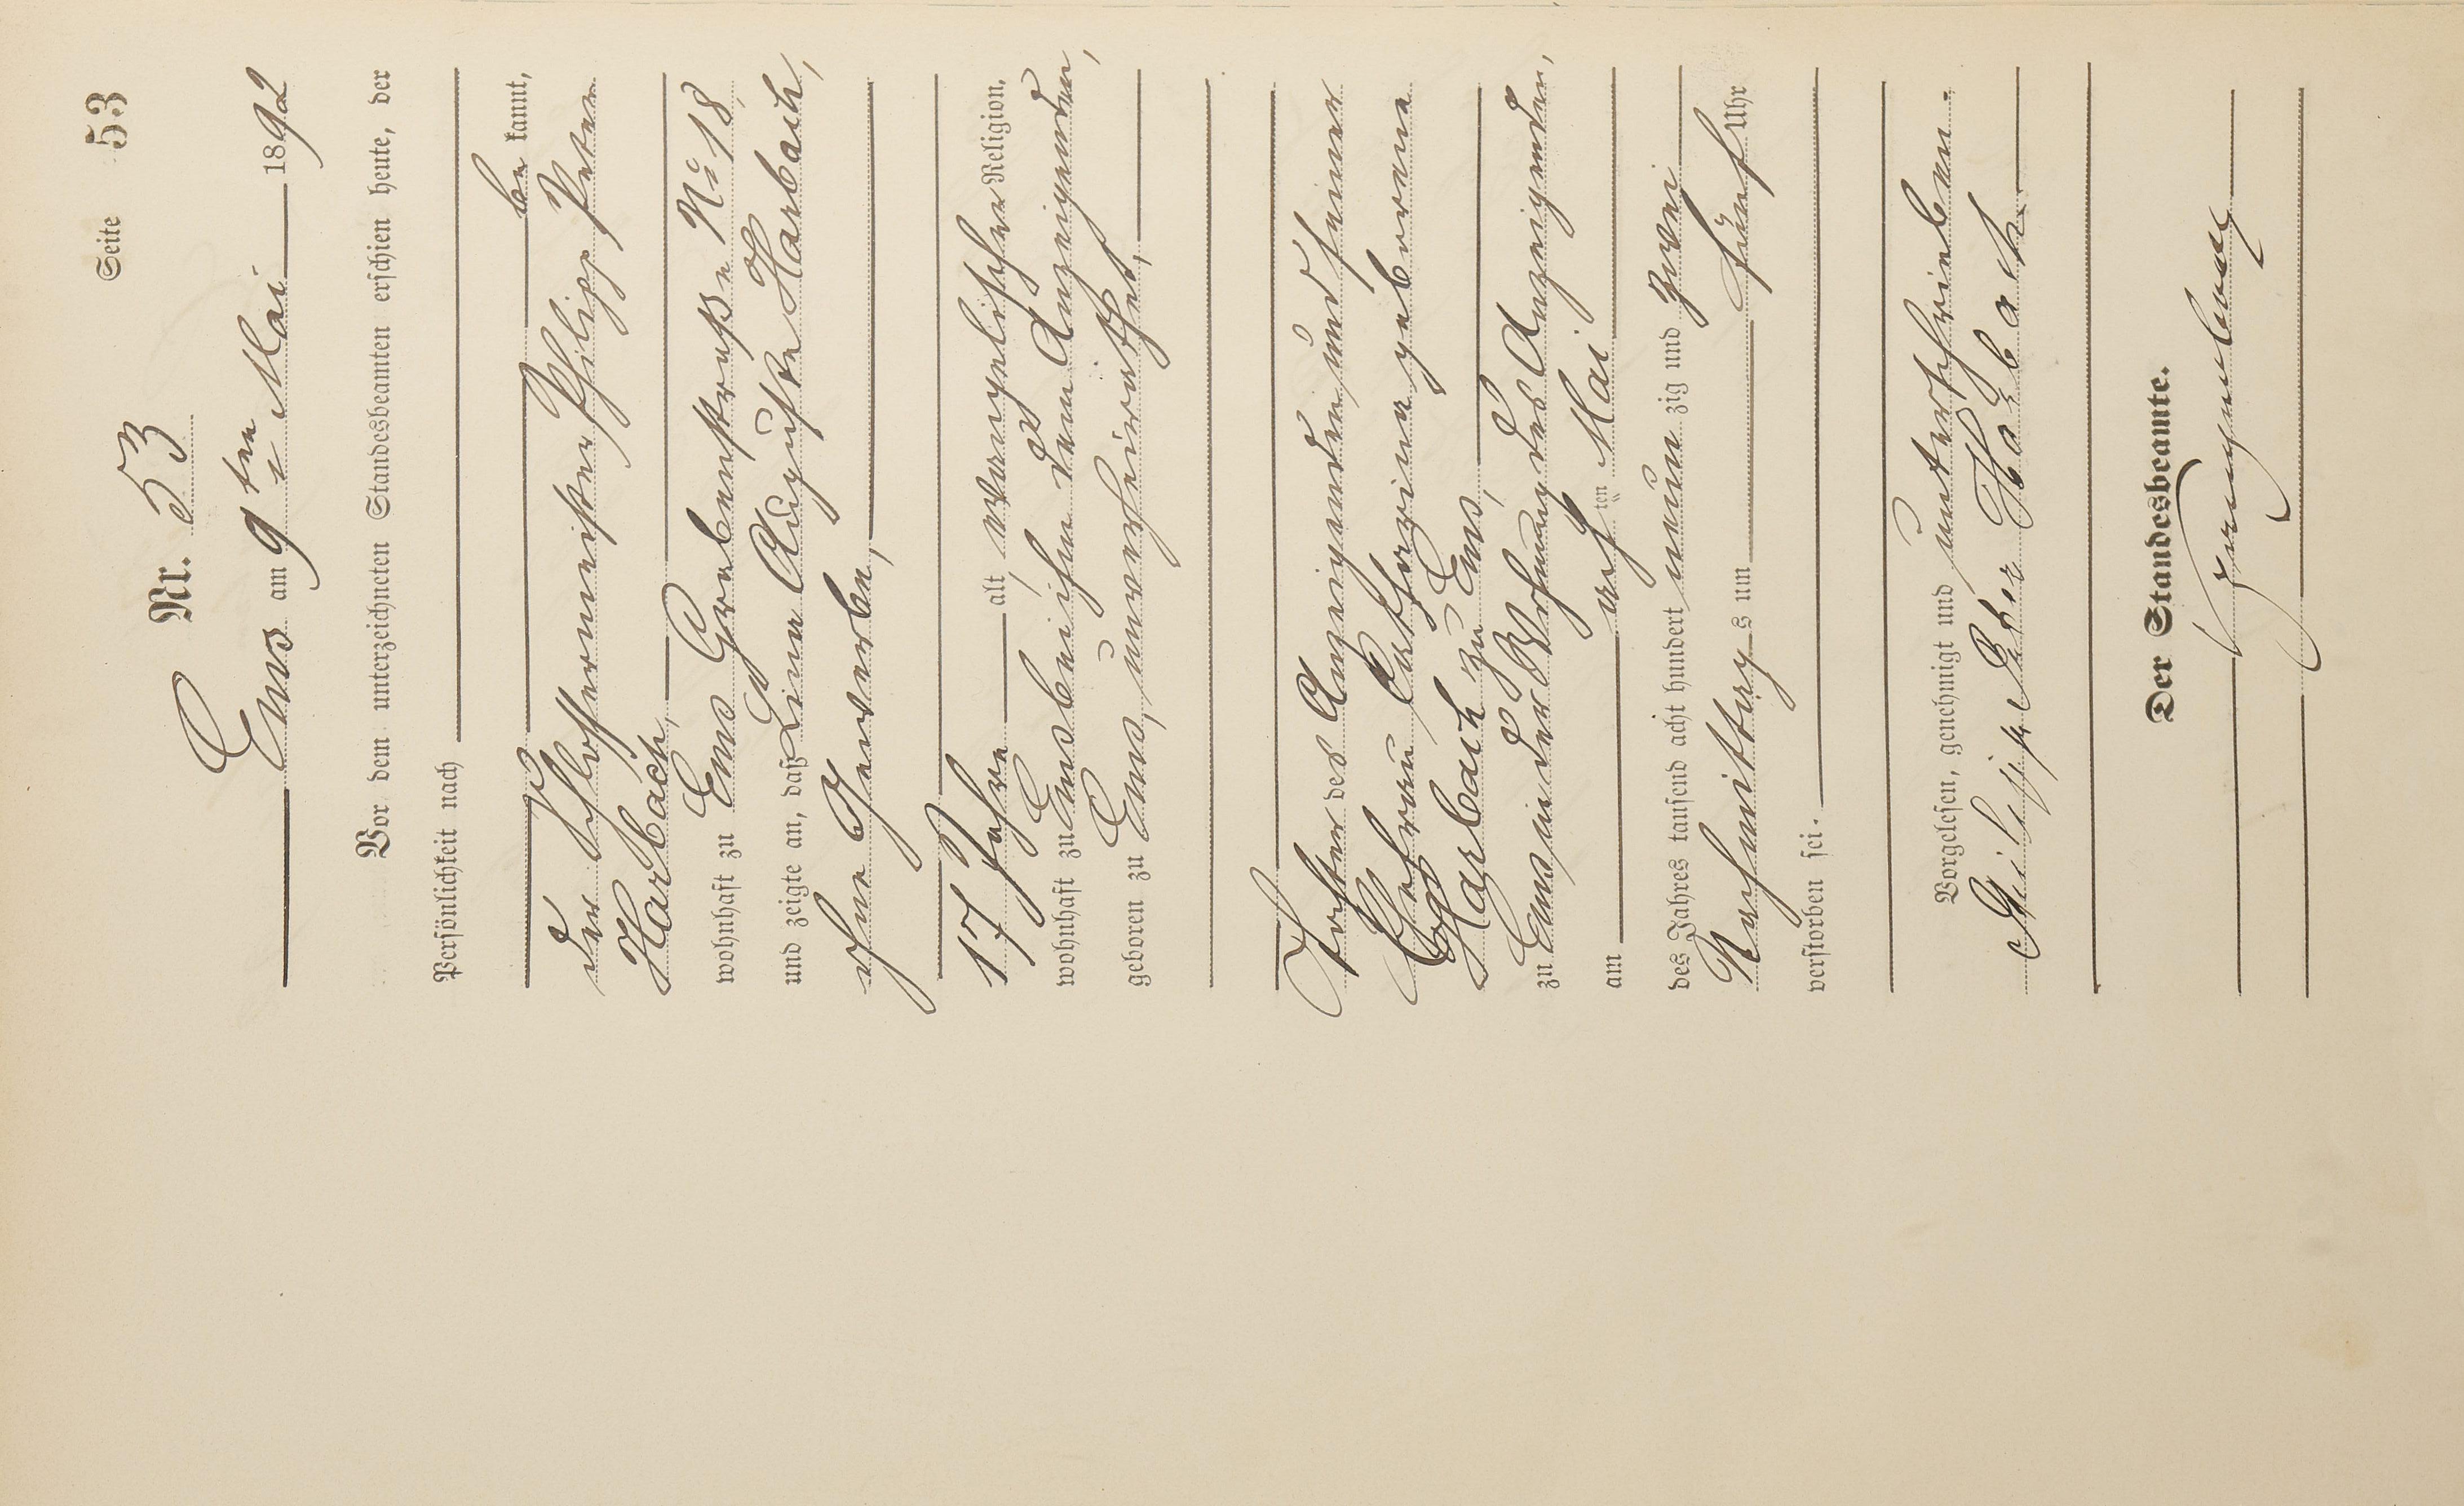 Seite 53
Nr. 53
Ems am 9ten Mai 1892
Vor dem unterzeichneten Standesbeamten erschien heute, der
Persönlichkeit nach
be kannt,
der Schlossermeister Philipp Peter
Harbach,
wohnhaft zu Ems Grabenstraße No 18,
und zeigte an, daß Lina Auguste Harbach,
ohne Gewerbe,
17 Jahre alt, evangelischer Religion,
wohnhaft zu Ems bei ihm dem Anzeigenden,
geboren zu Ems, unverheirathet,
Tochter des Anzeigenden und seiner
Ehefrau Catharina geborene
Harbach zu Ems,
zu Ems in der Wohnung des Anzeigenden,
am acht ten Mai
des Jahres tausend acht hundert neun zig und zwei
Nachmittag s um fünf Uhr
verstorben sei.
Vorgelesen, genehmigt und unterschrieben.
Philipp Peter Harbach
Der Standesbeamte.